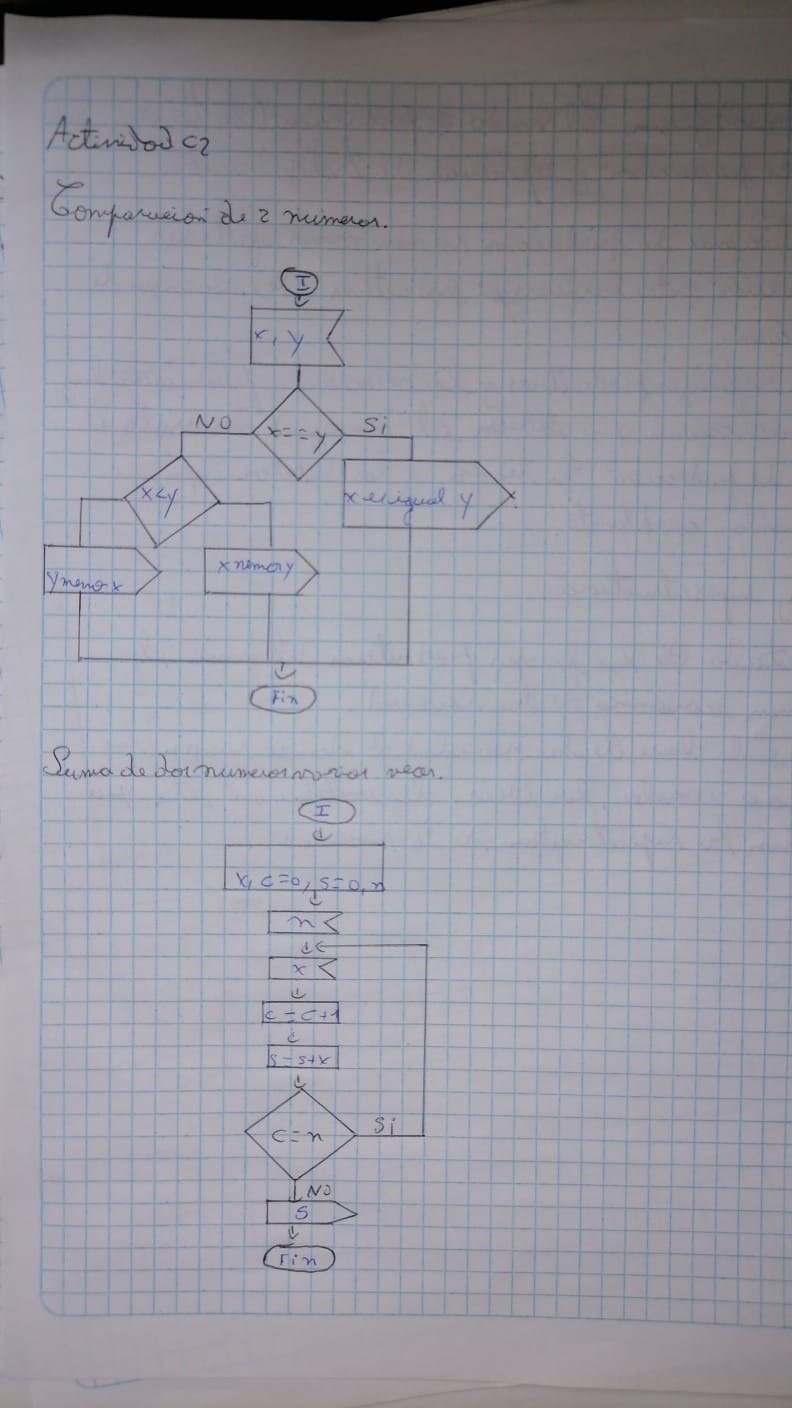 Actividad c2
Comparacion de 2 numeros.
I
x, y
NO
x==y
Si
x<y
x es igual y
y menor x
x menor y
Fin
Suma de dos numeros varias veces.
I
x, c=0, s=0, n
n
x
c=c+1
s=s+x
c=n
Si
NO
S
Fin